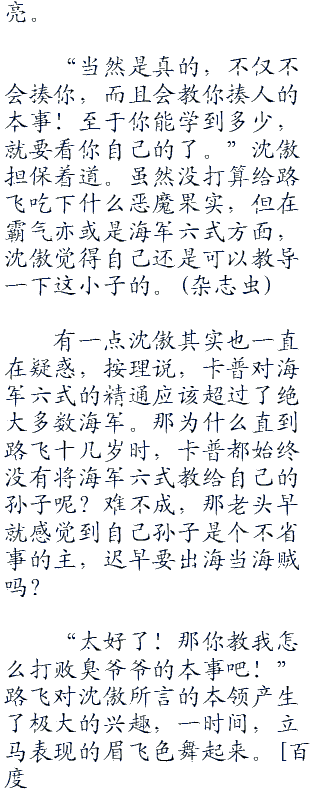 亮。
“当然是真的，不仅不
会揍你，而且会教你揍人的
本事！至于你能学到多少，
就要看你自己的了。”沈傲
担保着道。虽然没打算给路
飞吃下什么恶魔果实，但在
霸气亦或是海军六式方面，
沈傲觉得自己还是可以教导
一下这小子的。(杂志虫)
有一点沈傲其实也一直
在疑惑，按理说，卡普对海
军六式的精通应该超过了绝
大多数海军。那为什么直到
路飞十几岁时，卡普都始终
没有将海军六式教给自己的
孙子呢？难不成，那老头早
就感觉到自己孙子是个不省
事的主，迟早要出海当海贼
吗？
“太好了！那你教我怎
么打败臭爷爷的本事吧！”
路飞对沈傲所言的本领产生
了极大的兴趣，一时间，立
马表现的眉飞色舞起来。[百
度